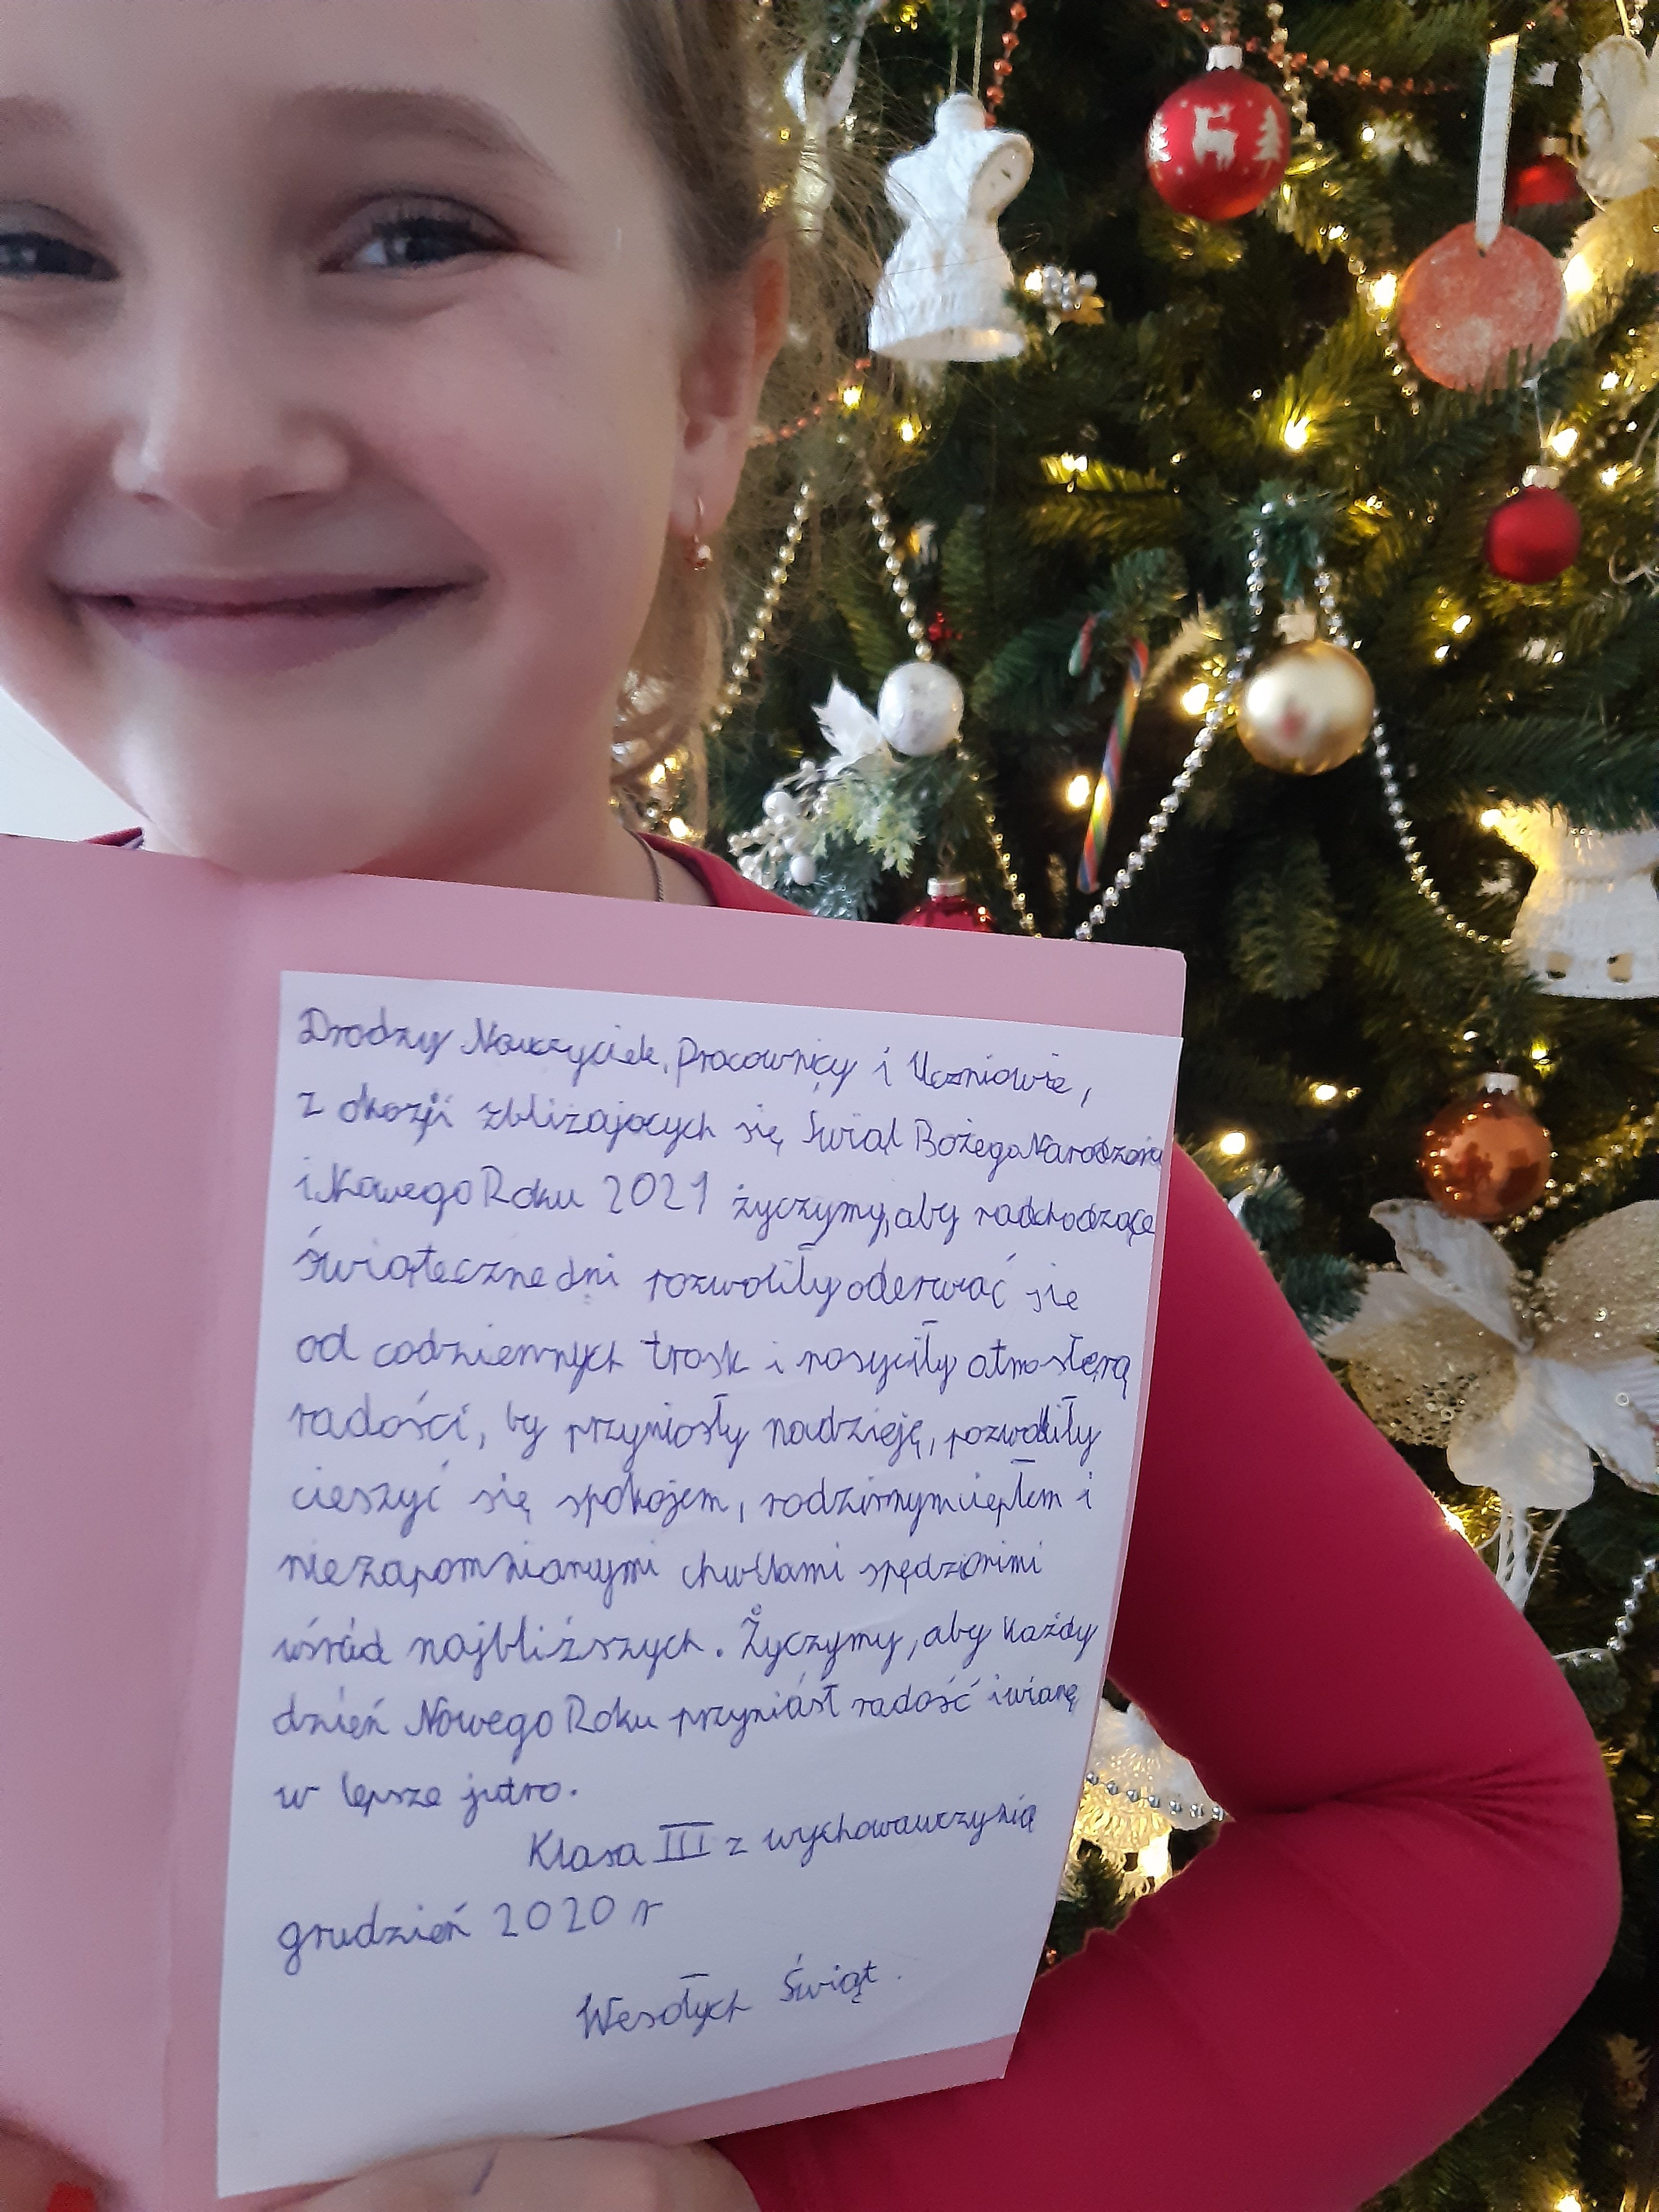 Drodzy Nauczyciele, Pracownicy i Uczniowie,
z okazji zbliżających się Świąt Bożego Narodzenia
i Nowego Roku 2021 życzymy, aby nadchodzące
świąteczne dni pozwoliły oderwać się
od codziennych trosk i nasyciły atmosferą
radości, by przyniosły nadzieję, pozwoliły
cieszyć się spokojem, rodzinnym ciepłem i
niezapomnianymi chwilami spędzonimi
wśród najbliższych. Życzymy, aby każdy
dzień Nowego Roku przyniósł radość i wiarę
w lepsze jutro.
Klasa III z wychowawczynią
grudzień 2020 r
Wesołych Świąt.